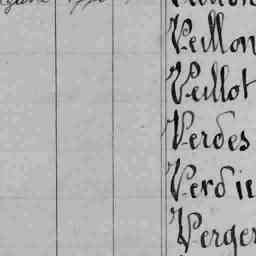 Veillon
Veillot
Verdes
Verdie
Verger